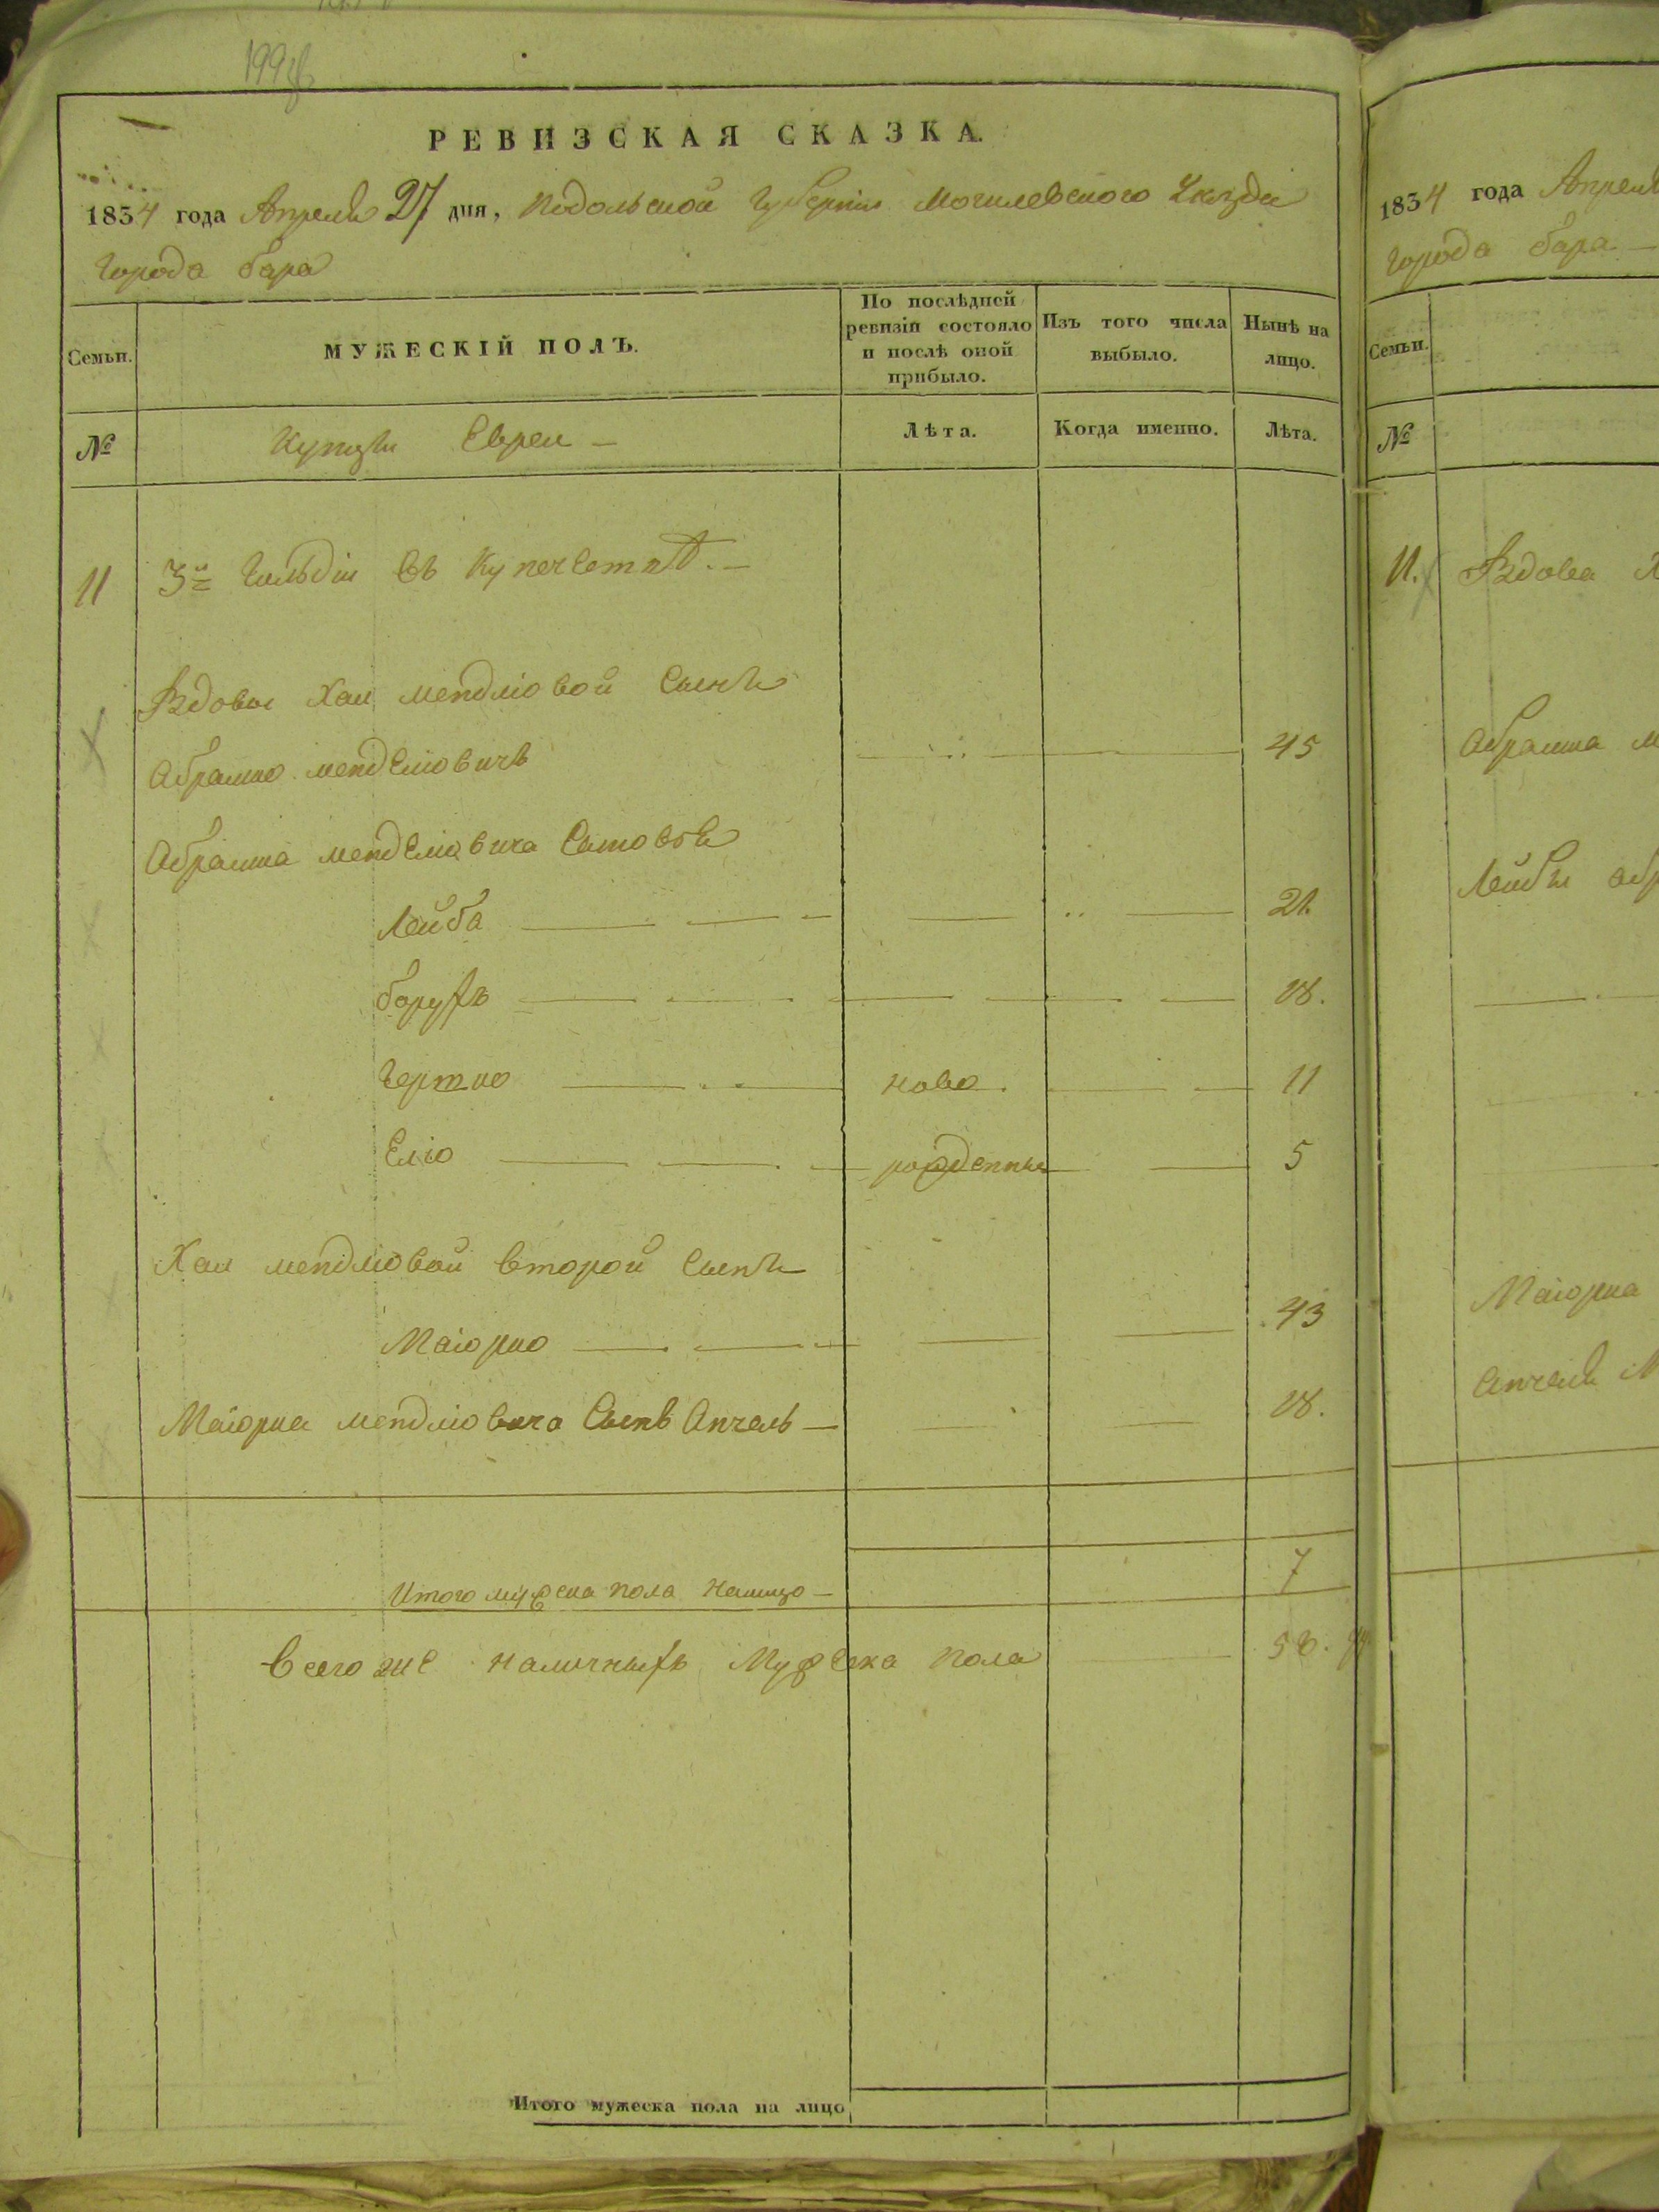 199об
РЕВИЗСКАЯ СКАЗКА.
1834 года Апреля 27 дня, Подольской Губернии Могилевского Уезда
города бара
Семьи.
МУЖЕСКІЙ ПОЛЪ.
По послѣдней ревизіи состояло и послѣ оной прибыло.
Изъ того числа выбыло.
Нынѣ на лицо.
№
Купцы Евреи —
Лѣта.
Когда именно.
Лѣта.
11 3й Гильдіи въ Купечествѣ. —
Вдовы Хаи Мендліовой Сынъ
Абрамко Менделіовичъ 45
Абрамка Менделіовича Сыновья
Лейба 21.
борухъ 18.
Гершко ново 11
Еліо рожденные 5
Хаи мендліовой второй Сынъ
Маіорко 43
Маіорка мендліовича Сынъ Анчель — 18.
Итого мужеска пола налицо — 7
Всего же наличныхъ Мужеска пола 58.
Итого мужеска пола на лицо
1834 года Апреля
города бара —
Семьи.
№
11. Вдова Х
Абрамка М
Лейбы абр
Маіорка
Анчеля М